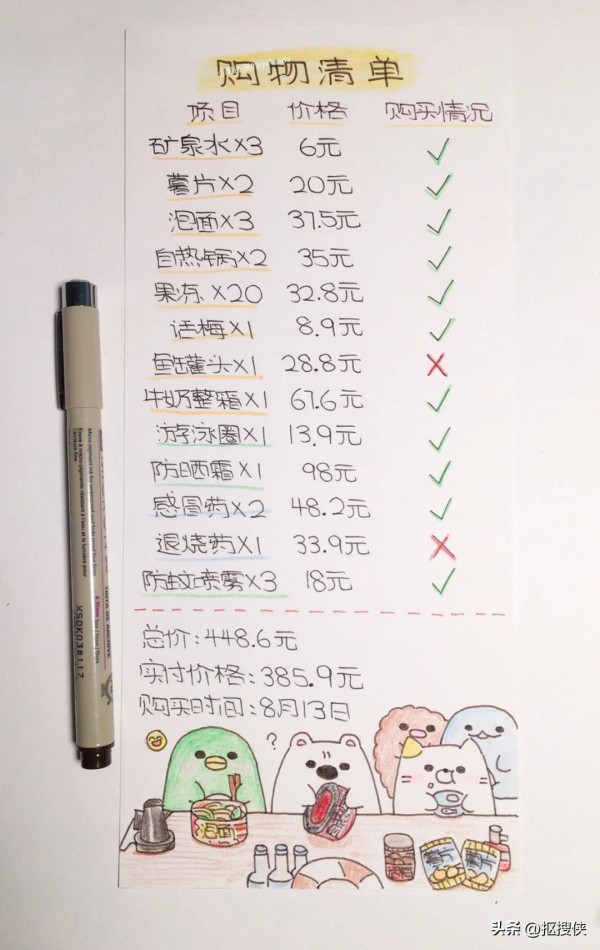 购物清单
项目 价格 购买情况
矿泉水×3 6元 ✓
薯片×2 20元 ✓
泡面×3 37.5元 ✓
自热锅×2 35元 ✓
果冻×20 32.8元 ✓
话梅×1 8.9元 ✓
鱼罐头×1 28.8元 ×
牛奶整霜×1 67.6元 ✓
游泳圈×1 13.9元 ✓
防晒霜×1 98元 ✓
感冒药×2 48.2元 ✓
退烧药×1 33.9元 ×
防蚊喷雾×3 18元 ✓
总价:448.6元
实付价格:385.9元
购买时间:8月13日
?
泡面
XSDK03#117
头条 @抠搜侠